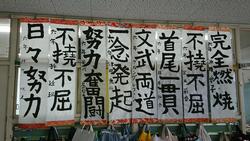 完全燃焼
不撓不屈
首尾一貫
文武両道
一念発起
努力奮闘
不撓不屈
日々努力